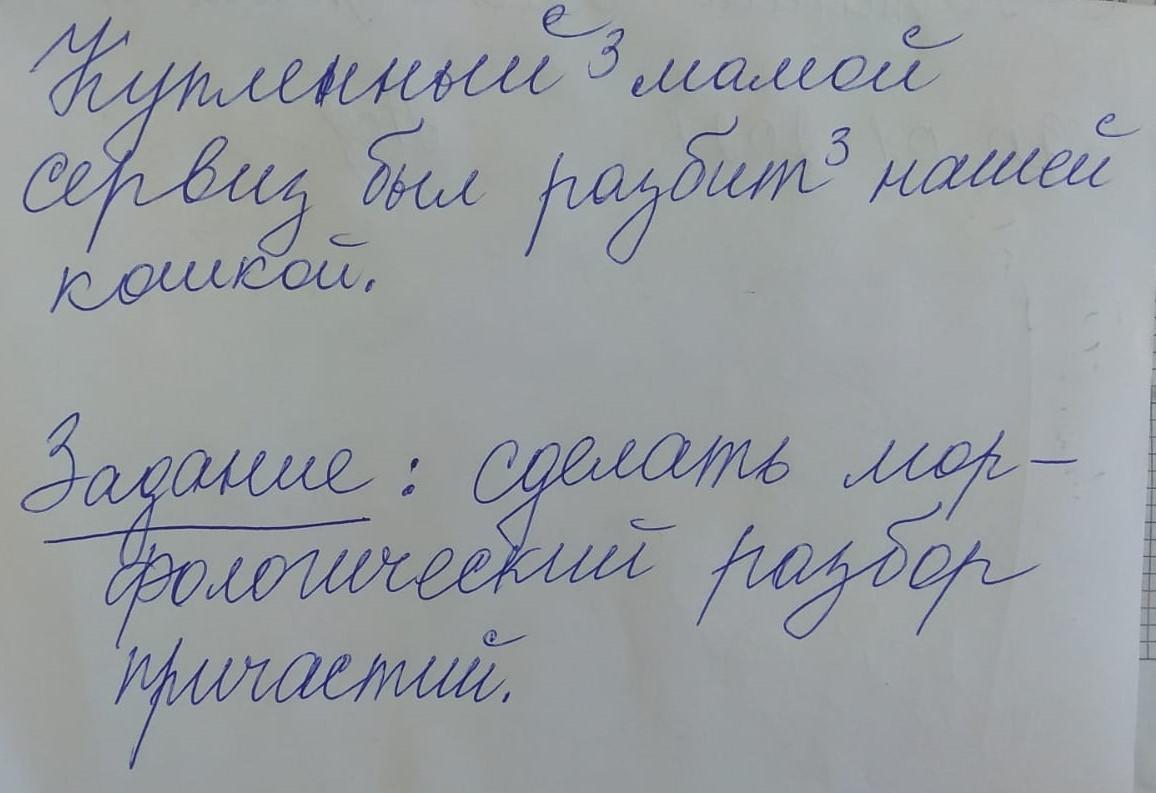 Купленный³ мамой
сервиз был разбит³ нашей
кошкой.
Задание: сделать мор-
фологический разбор
причастий.